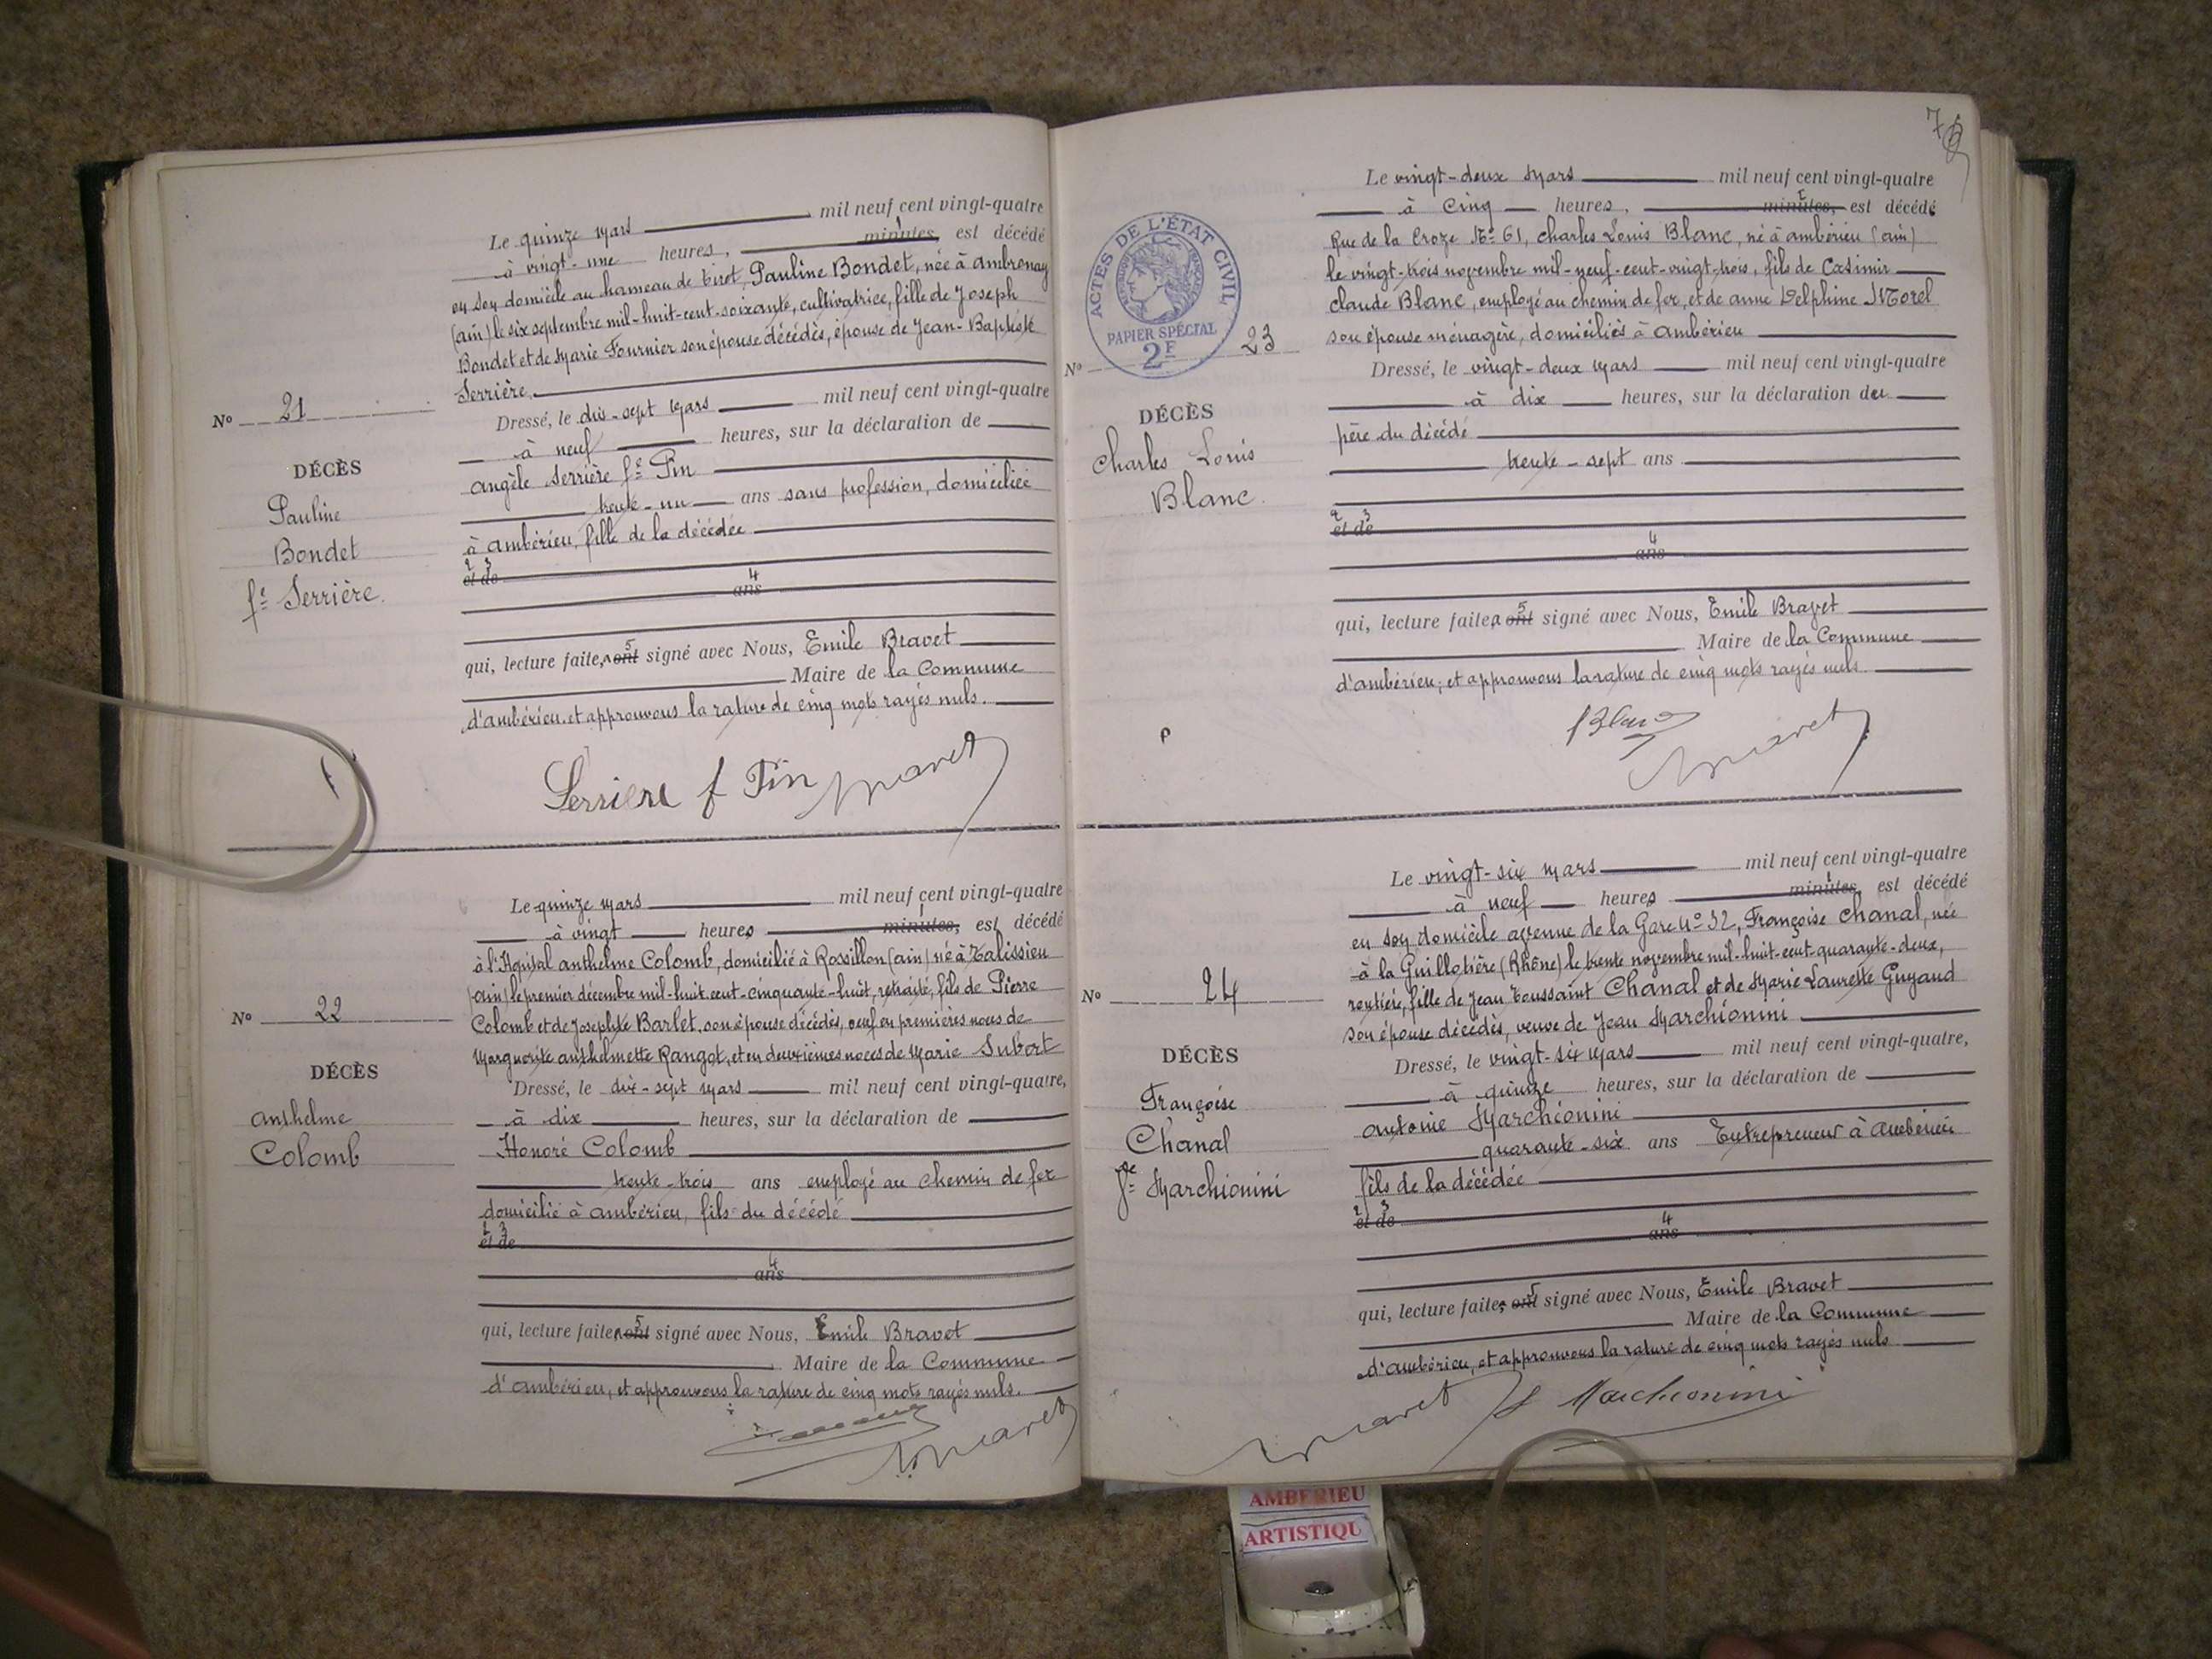 Le quinze mars mil neuf cent vingt-quatre
à vingt-une heures, minutes, est décédé
en son domicile au hameau de Tiret, Pauline Bondet, née à Ambronay
(ain) le six septembre mil-huit-cent-soixante, cultivatrice, fille de Joseph
Bondet et de Marie Fournier son épouse décédés, épouse de Jean-Baptiste
Serrière.
Dressé, le dix-sept mars mil neuf cent vingt-quatre
à neuf heures, sur la déclaration de
angèle Serrière fe Pin
trente-un ans sans profession, domiciliée
à ambérieu, fille de la décédée
2 3
et de
4
ans
qui, lecture faite, a ont 5 signé avec Nous, Emile Bravet
Maire de la Commune
d'ambérieu, et approuvons la rature de cinq mots rayés nuls.
Serriere f Pin
Bravet
No 21
DÉCÈS
Pauline
Bondet
fe Serrière.
Le quinze mars mil neuf cent vingt-quatre
à vingt heures minutes, est décédé
à l'Hôpital anthelme Colomb, domicilié à Rossillon (ain) né à Talissieu
(ain) le premier décembre mil-huit-cent-cinquante-huit, retraité, fils de Pierre
Colomb et de Josephte Barlet, son épouse décédés, veuf en premières noces de
Marguerite anthelmette Rangot, et en deuxièmes noces de Marie Subort
Dressé, le dix-sept mars mil neuf cent vingt-quatre,
à dix heures, sur la déclaration de
Honoré Colomb
trente-trois ans employé au chemin de fer
domicilié à ambérieu, fils du décédé
2 3
et de
4
ans
qui, lecture faite, a ont 5 signé avec Nous, Emile Bravet
Maire de la Commune
d'ambérieu, et approuvons la rature de cinq mots rayés nuls.
Bravet
No 22
DÉCÈS
anthelme
Colomb
7
Le vingt-deux mars mil neuf cent vingt-quatre
à cinq heures, minutes, est décédé
Rue de la Croze No 61, charles Louis Blanc, né à ambérieu (ain)
le vingt-trois novembre mil-neuf-cent-vingt-trois, fils de Casimir
claude Blanc, employé au chemin de fer, et de anne Delphine Morel
son épouse ménagère, domiciliés à ambérieu
Dressé, le vingt-deux mars mil neuf cent vingt-quatre
à dix heures, sur la déclaration du
père du décédé
trente-sept ans
2 3
et de
4
ans
qui, lecture faite, a ont 5 signé avec Nous, Emile Bravet
Maire de la Commune
d'ambérieu, et approuvons la rature de cinq mots rayés nuls
Blanc
Bravet
ACTES DE L'ÉTAT CIVIL
RÉPUBLIQUE FRANÇAISE
PAPIER SPÉCIAL
2F
No 23
DÉCÈS
Charles Louis
Blanc.
Le vingt-six mars mil neuf cent vingt-quatre
à neuf heures minutes, est décédé
en son domicile avenue de la Gare No 32, Françoise Chanal, née
à la Guillotière (Rhône) le trente novembre mil-huit-cent-quarante-deux,
rentière, fille de Jean Toussaint Chanal et de Marie Laurette Guyaud
son épouse décédés, veuve de Jean Marchionini
Dressé, le vingt-six mars mil neuf cent vingt-quatre,
à quinze heures, sur la déclaration de
antonie Marchionini
quarante-six ans Entrepreneur à ambérieu
fils de la décédée
2 3
et de
4
ans
qui, lecture faite, a ont 5 signé avec Nous, Emile Bravet
Maire de la Commune
d'ambérieu, et approuvons la rature de cinq mots rayés nuls
Bravet
Marchionini
No 24
DÉCÈS
Françoise
Chanal
Ve Marchionini
AMBERIEU
ARTISTIQU